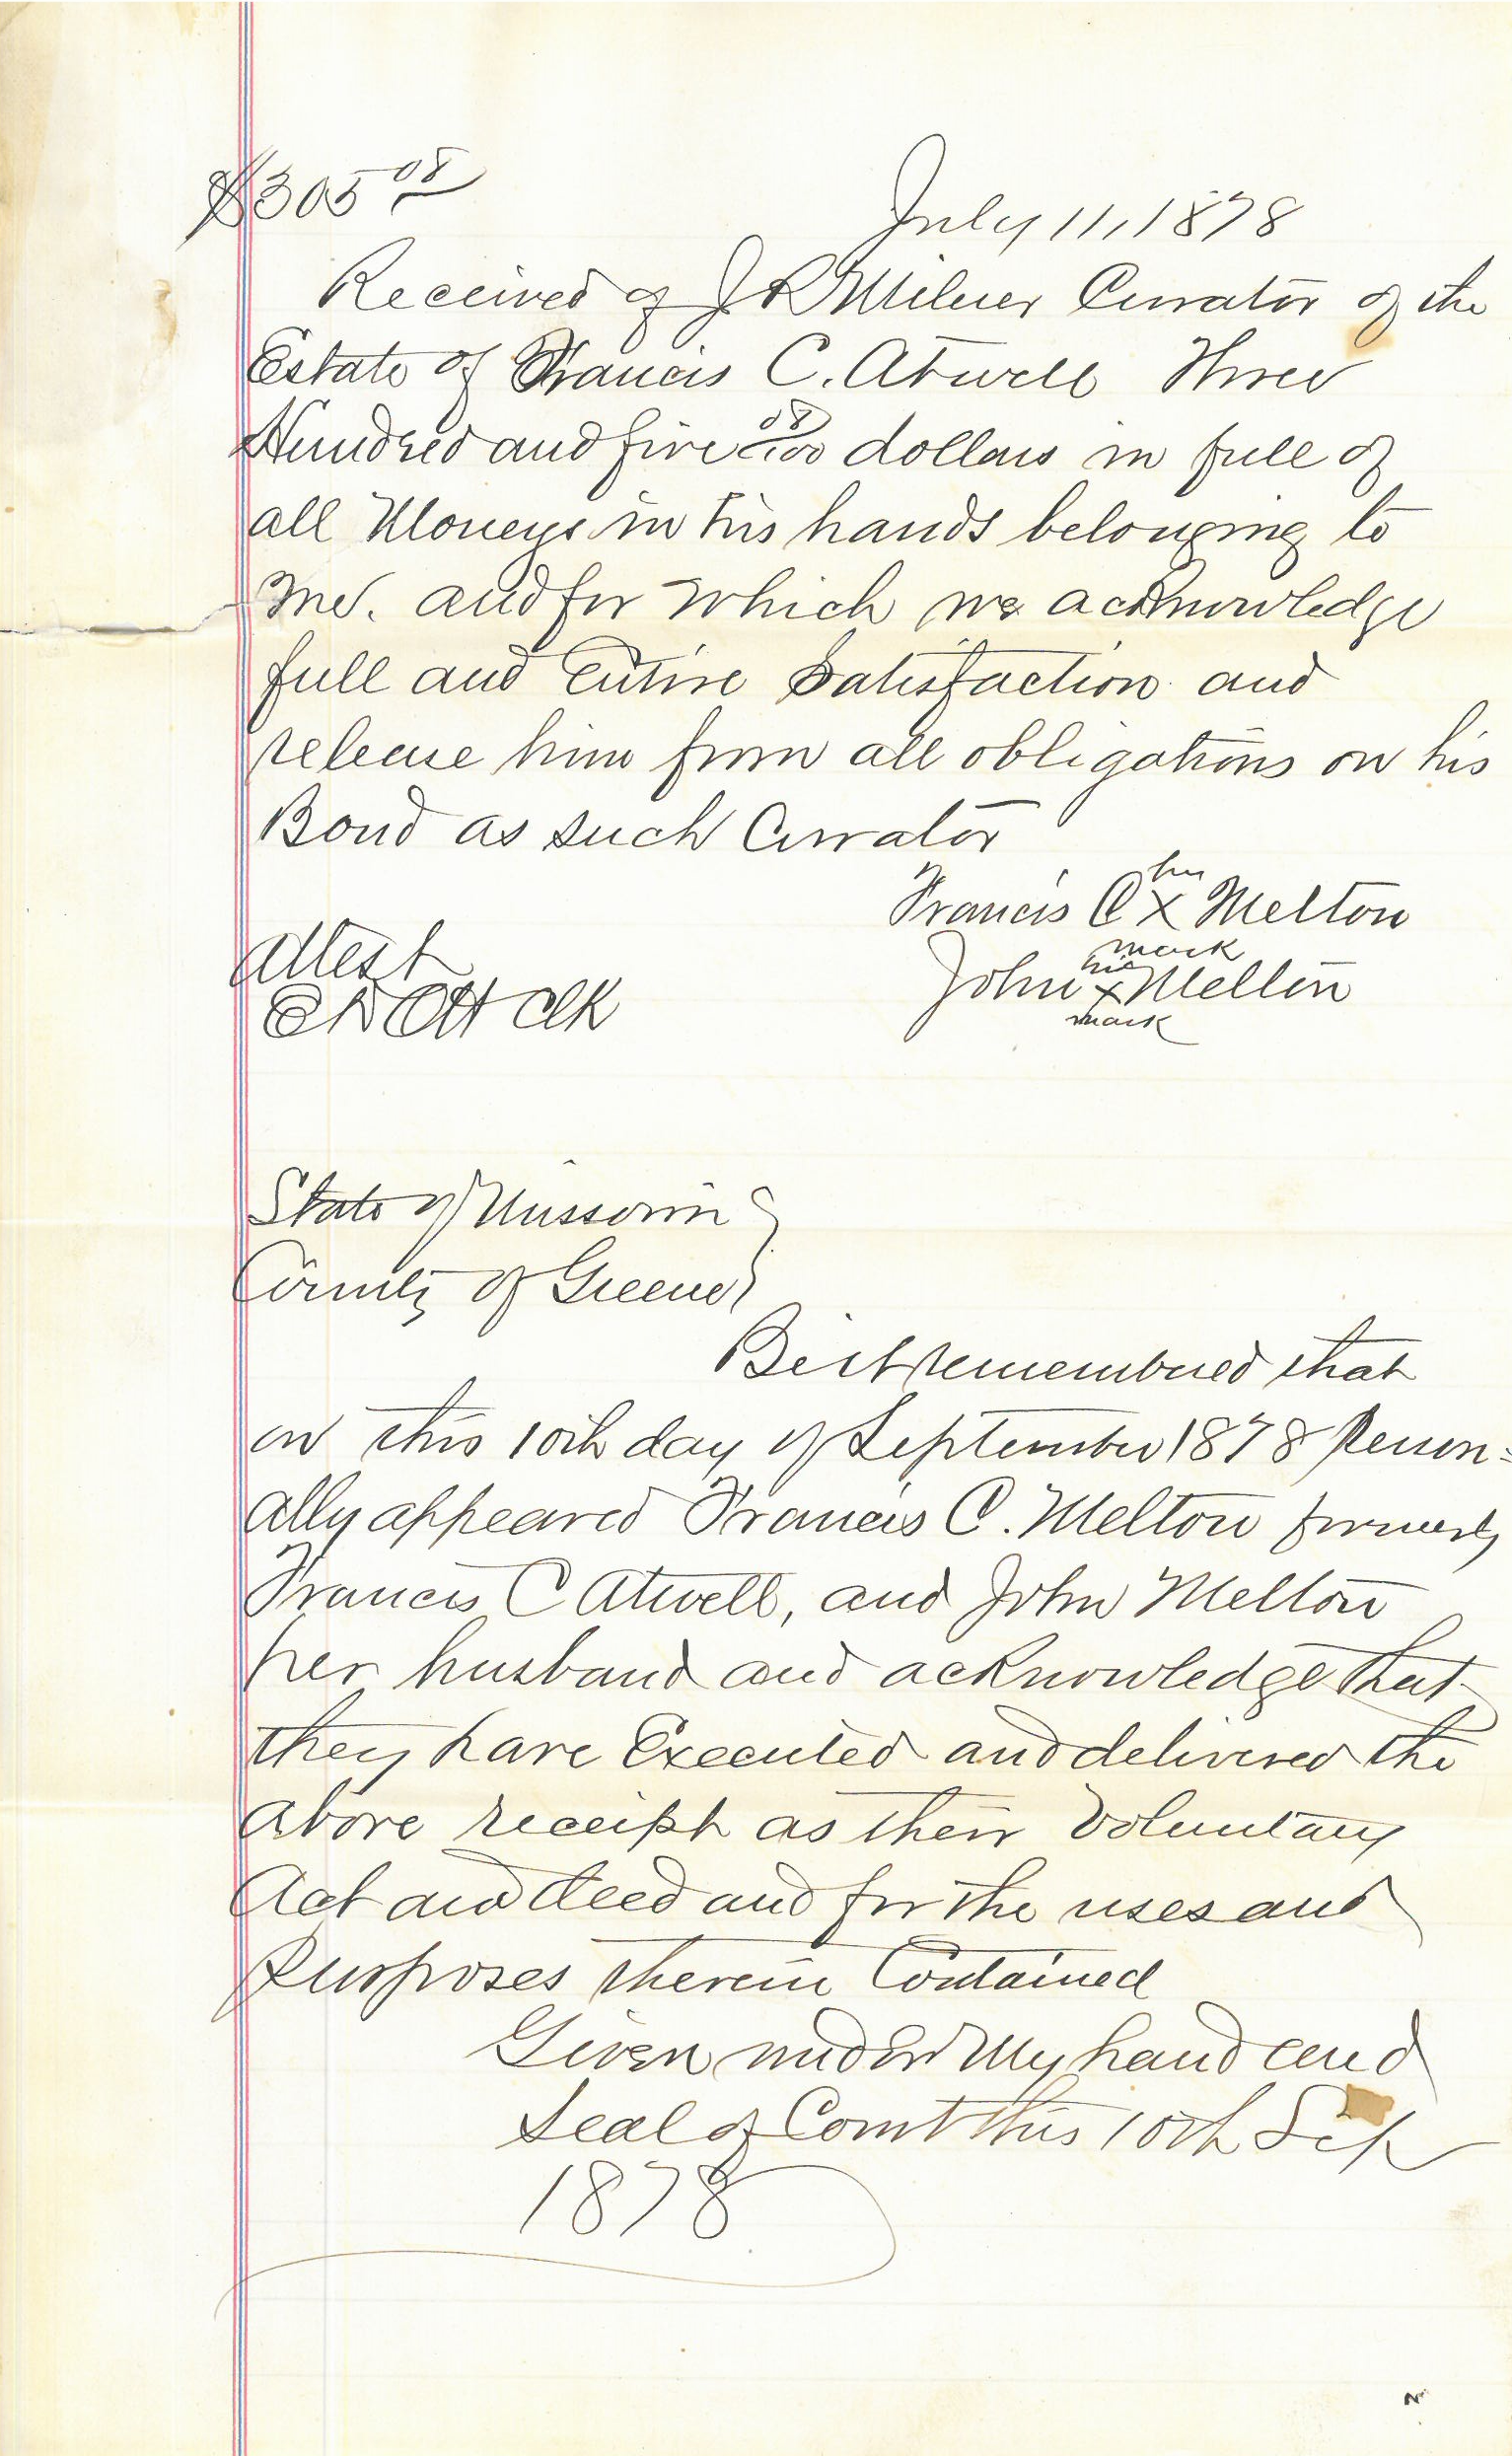 $305 08
July 11, 1878
Received of J R Milner Currator of the
Estate of Francis C. Atwell Three
Hundred and five 08/100 dollars in full of
all Moneys in his hands belonging to
me. and for which we acknowledge
full and Entire Satisfaction and
release him from all obligations on his
Bond as such Currator
her
Francis C X Melton
mark
his
John X Melton
mark
Attest
Ott Clk
State of Missouri }
County of Greene }
Be it remembered that
on this 10th day of September 1878 Person=
ally appeared Francis C. Melton formerly
Francis C Atwell, and John Melton
her husband and acknowledge that
they have Executed and delivered the
above receipt as their Voluntary
Act and deed and for the uses and
Purposes therein Contained
Given under My hand and
Seal of Court this 10th Sep
1878